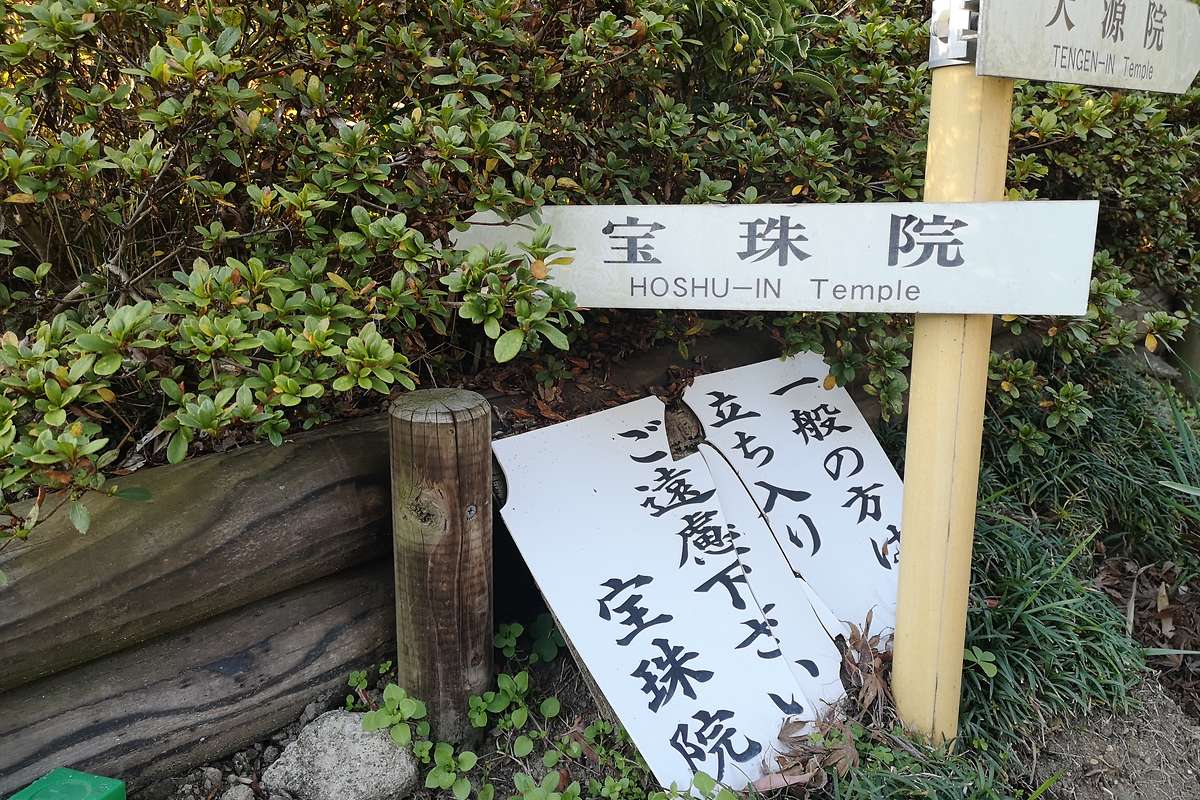 天源院
TENGEN-IN Temple
宝珠院
HOSHU-IN Temple
一般の方は
立ち入り
ご遠慮下さい
宝珠院